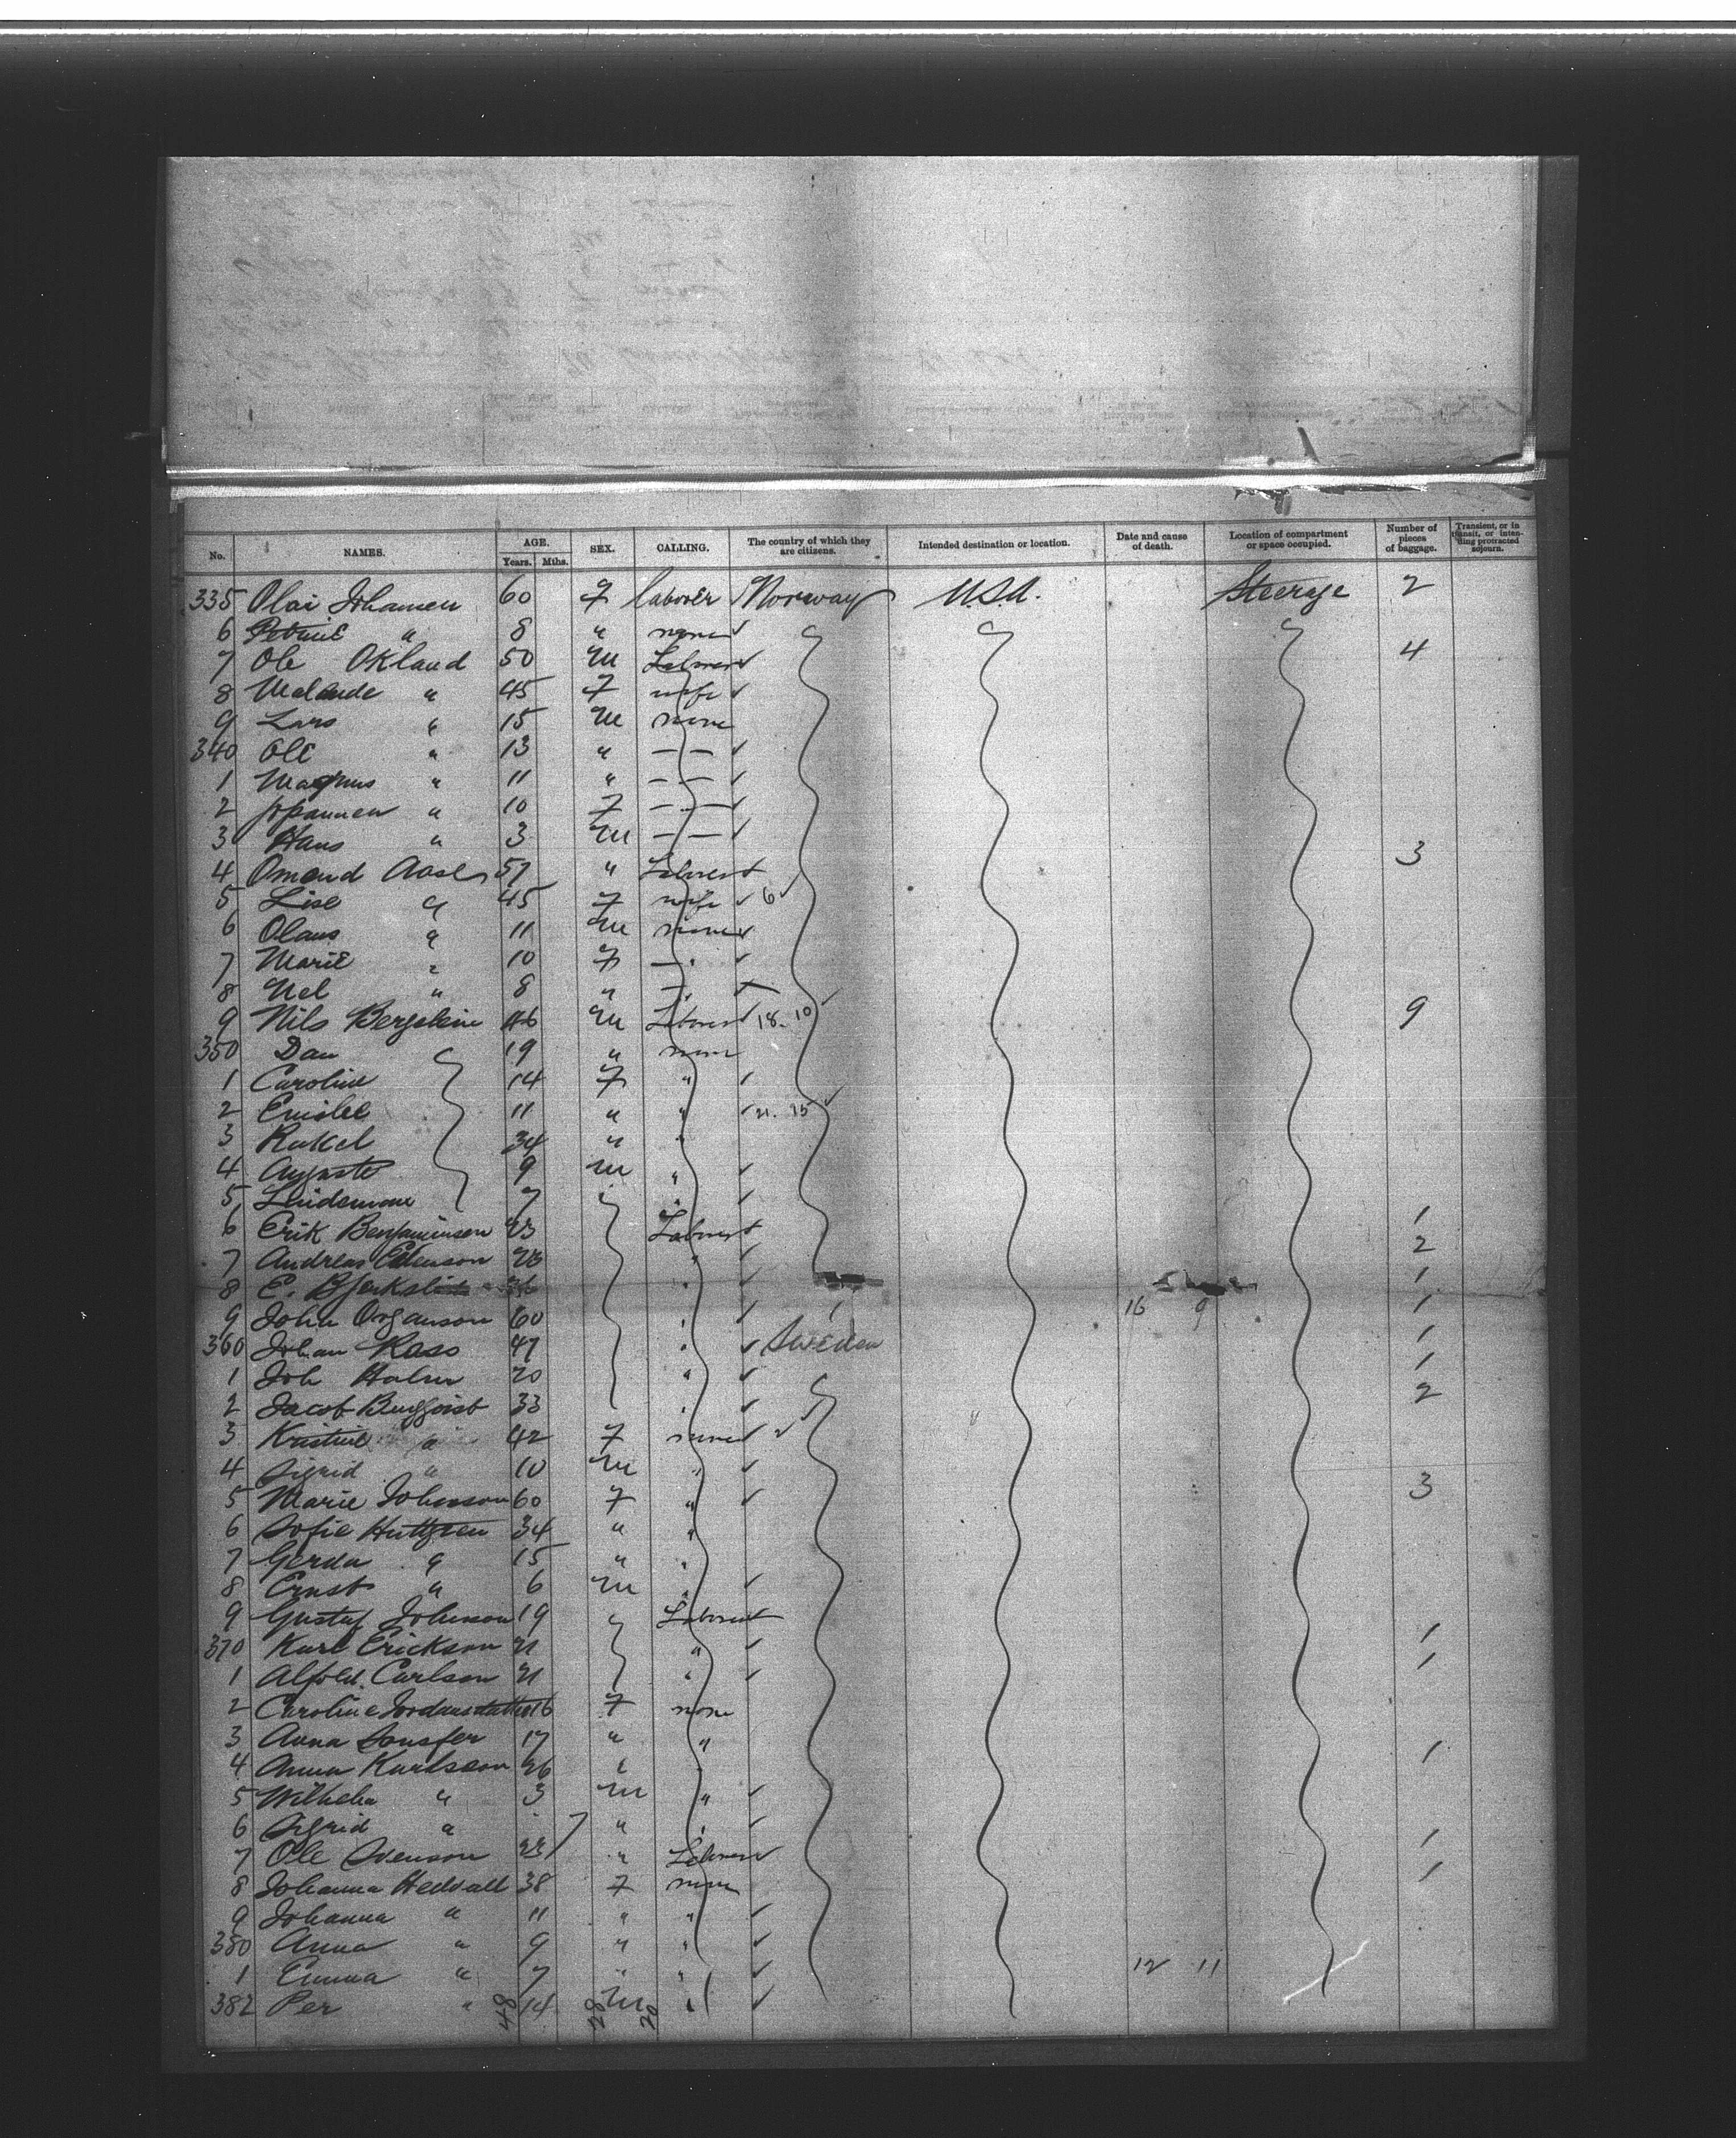 No. NAMES. AGE. Years. Mths. SEX. CALLING. The country of which they are citizens. Intended destination or location. Date and cause of death. Location of compartment or space occupied. Number of pieces of baggage. Transient, or in transit, or intending protracted sojourn.
335 Olai Johansen 60 F laborer Norway U.S.A. Steerage 2
6 " 8 " none
7 Ole Okland 50 M Laborer 4
8 " 45 F wife
9 Lars " 15 M none
340 Ole " 13 " — —
1 Magnus " 11 " — —
2 " 10 F — —
3 Hans " 3 M — —
4 Omand 57 " Laborer 3
5 Lise " 45 F wife 6
6 Olaus " 11 M none
7 Marie " 10 F — "
8 Nel " 8 " — "
9 Nils 46 M Laborer 18. 10 9
350 Dan 19 " none
1 Caroline 14 F "
2 11 " " 21. 15
3 Rakel 34 " "
4 9 M "
5 7 "
6 Erik Benjaminsen 23 Laborer 1
7 Andreas 28 " 2
8 E. 36 " 1
9 John 60 " 16 9 1
360 Johan Kass 47 " Sweden 1
1 Joh Holm 20 " 1
2 Jacob 33 " 2
3 Kristine " 42 F none 2
4 Sigrid " 10 M "
5 Marie Johnson 60 F " 3
6 Sofie Huttgren 34 " "
7 Gerda " 15 " "
8 Ernst " 6 M "
9 Gustaf Johnson 19 Laborer
370 Karl Erickson 21 " 1
1 Carlson 21 " 1
2 Caroline 16 F none
3 Anna 17 " "
4 Anna Karlsson 26 " 1
5 Wilhelm " 3 M "
6 Sigrid " " "
7 Ole Svenson 23 " Laborer 1
8 Johanna Hedvall 38 F none 1
9 Johanna " 11 " "
380 Anna " 9 " "
1 Emma " 7 " " 12 11
382 Per " 14 M "
48 28 20